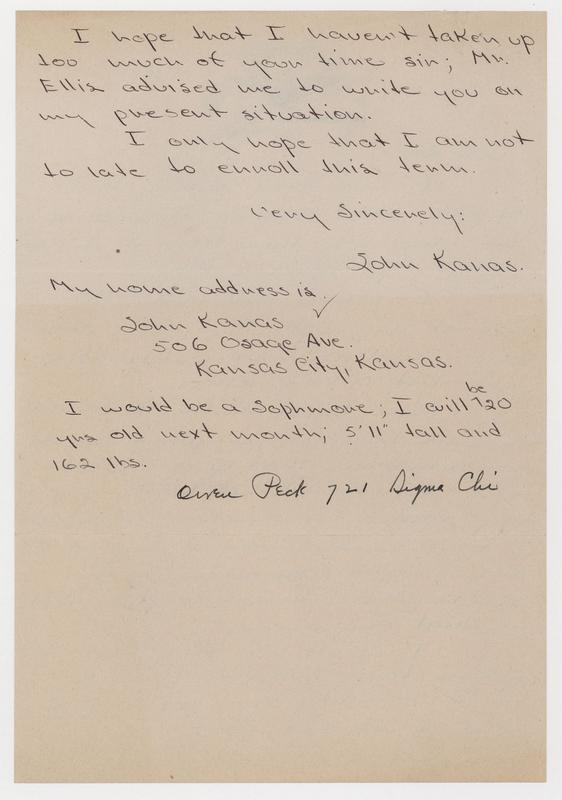 I hope that I haven't taken up
too much of your time sir; Mr.
Ellis advised me to write you on
my present situation.
I only hope that I am not
to late to enroll this term.
Very Sincerely:
John Kanas.
My home address is.
John Kanas
506 Osage Ave.
Kansas City, Kansas.
I would be a Sophmore; I will be 20
yrs old next month; 5'11" tall and
162 lbs.
Owen Peck 721 Sigma Chi